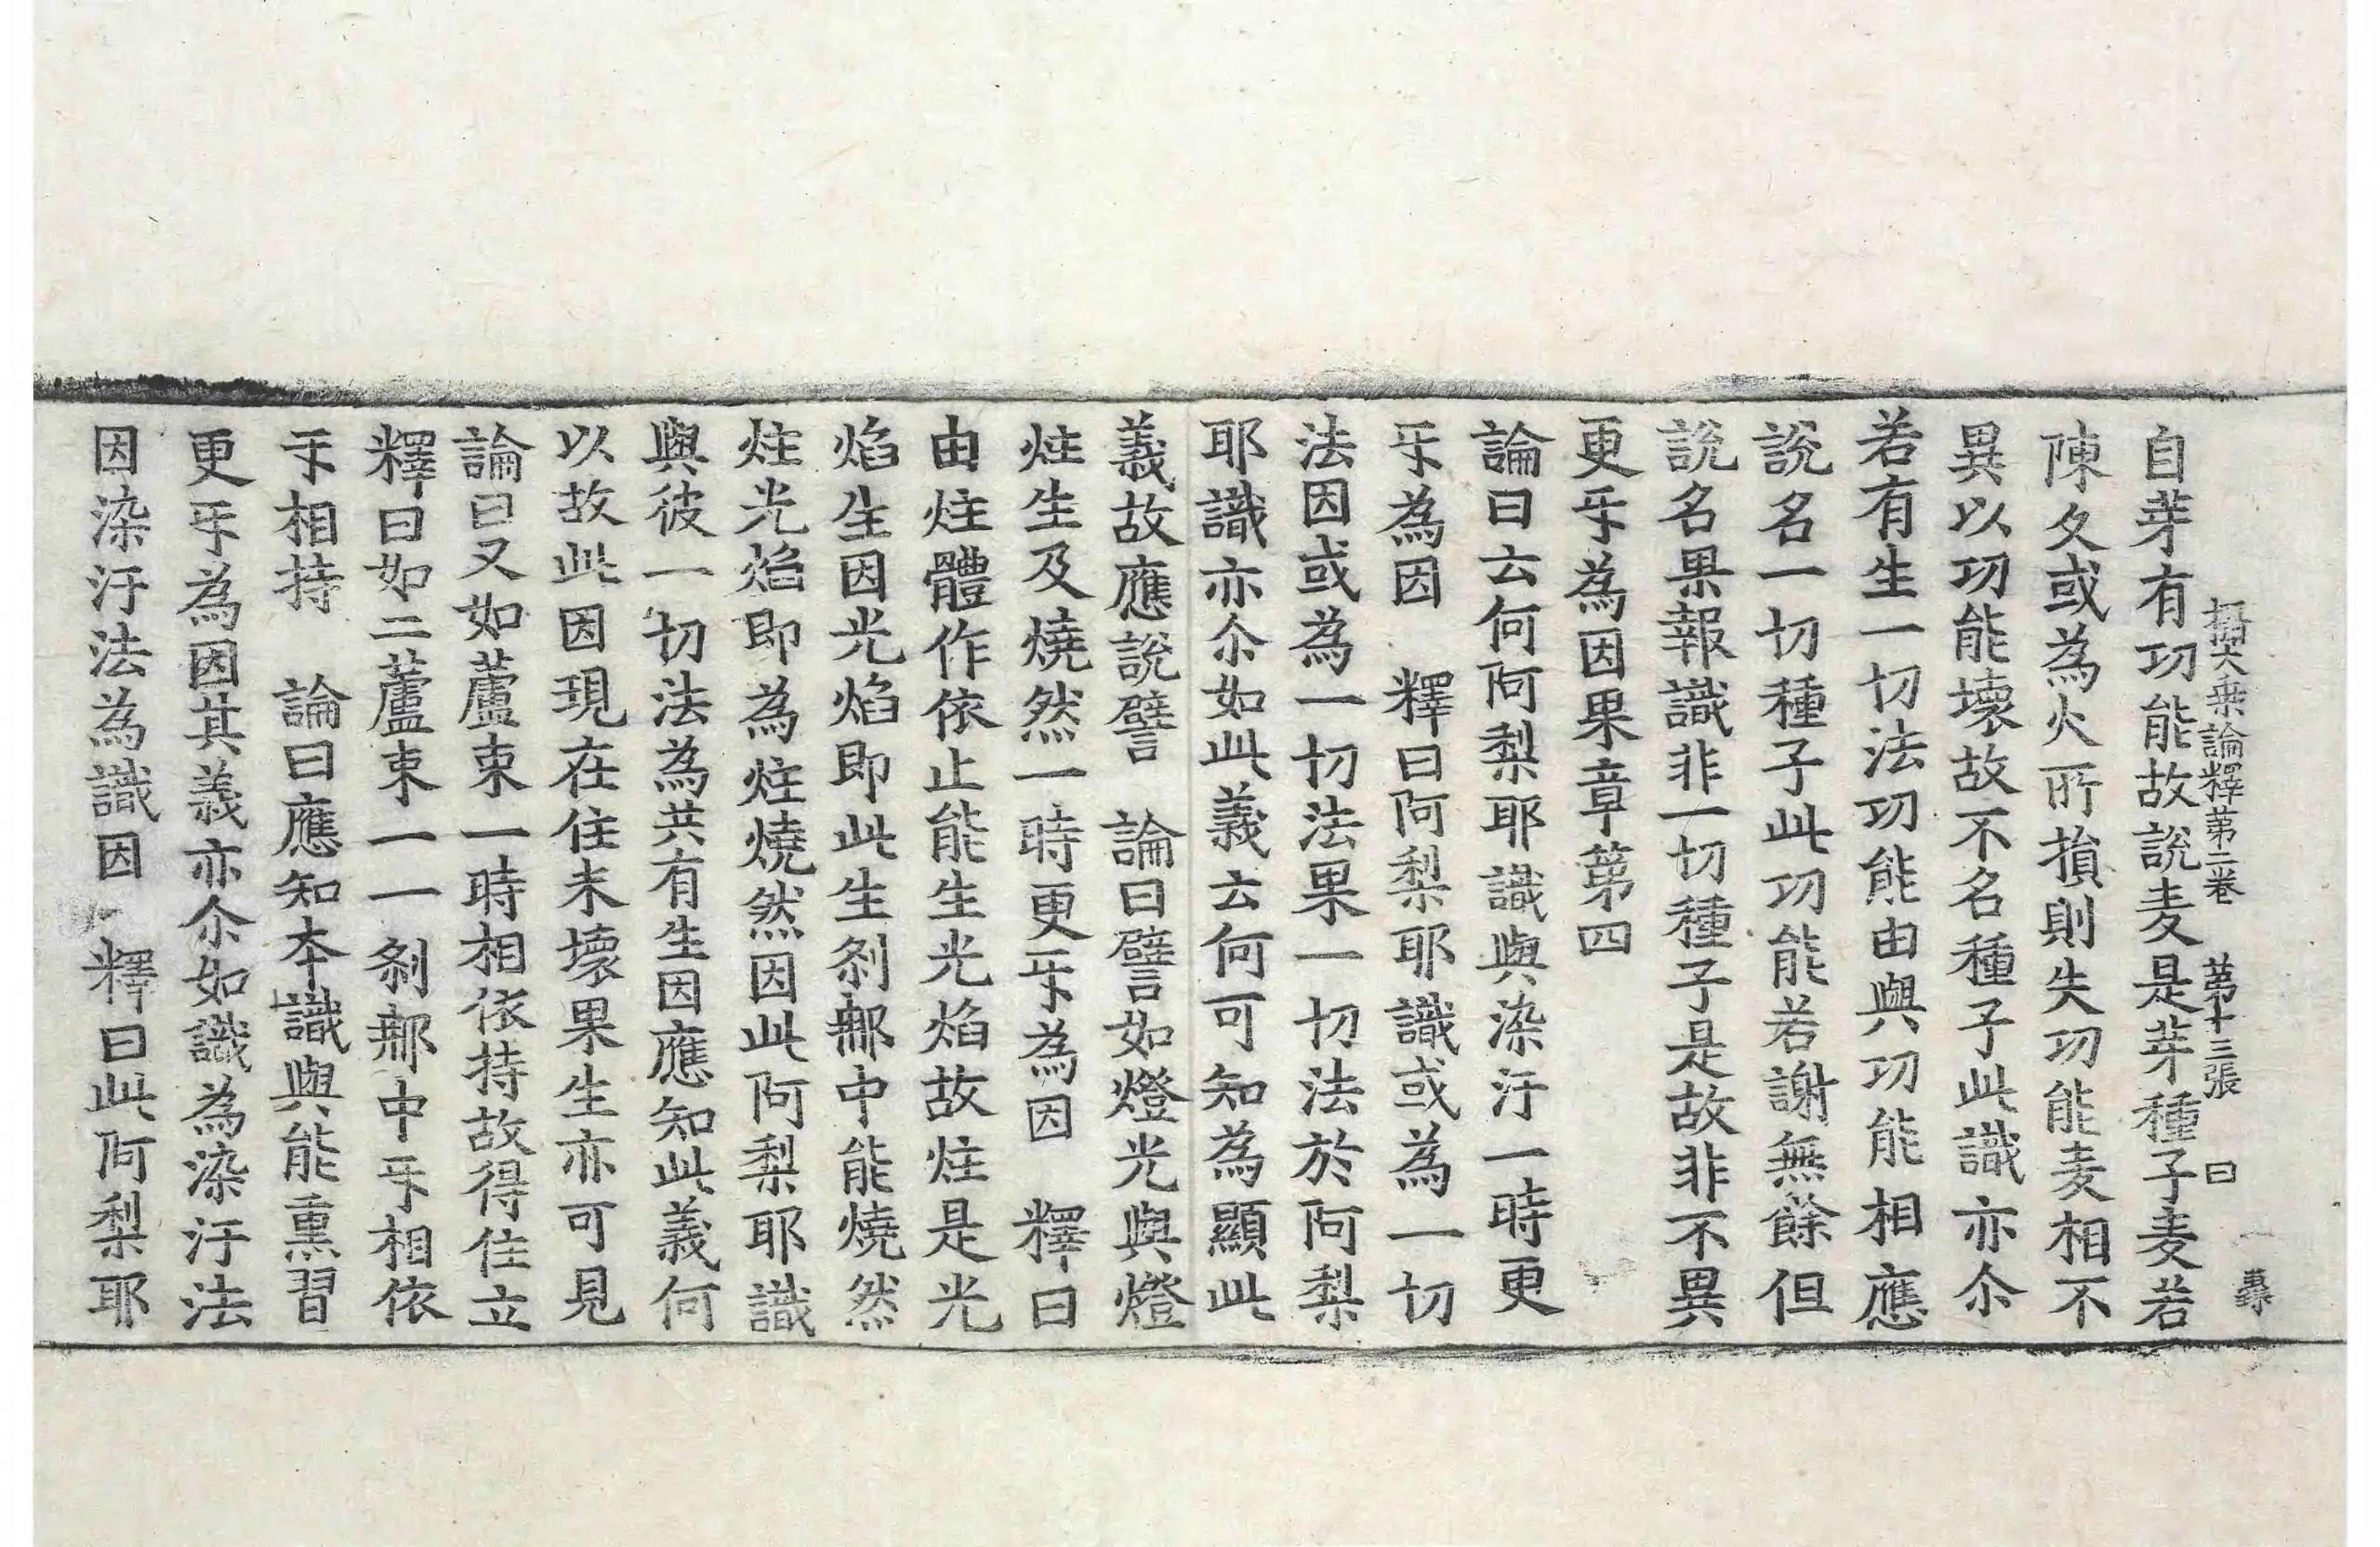 攝大乗論釋第二卷　第十三張　曰
自芽有功能故說麦是芽種子麦若
陳久或為火所損則失功能麦相不
異以功能壞故不名種子此識亦尒
若有生一切法功能由與功能相應
說名一切種子此功能若謝無餘但
說名果報識非一切種子是故非不異
更㸦為因果章第四
論曰云何阿梨耶識與染汙一時更
㸦為因　釋曰阿梨耶識或為一切
法因或為一切法果一切法於阿梨
耶識亦尒如此義云何可知為顯此
義故應說譬　論曰譬如燈光與燈
炷生及燒然一時更㸦為因　釋曰
由炷體作依止能生光焰故炷是光
焰生因光焰即此生剎那中能燒然
炷光焰即為炷燒然因此阿梨耶識
與彼一切法為共有生因應知此義何
以故此因現在住未壞果生亦可見
論曰又如蘆束一時相依持故得住立
釋曰如二蘆束一一剎那中㸦相依
㸦相持　論曰應知本識與能熏習
更㸦為因其義亦尒如識為染汙法
因染汙法為識因　釋曰此阿梨耶